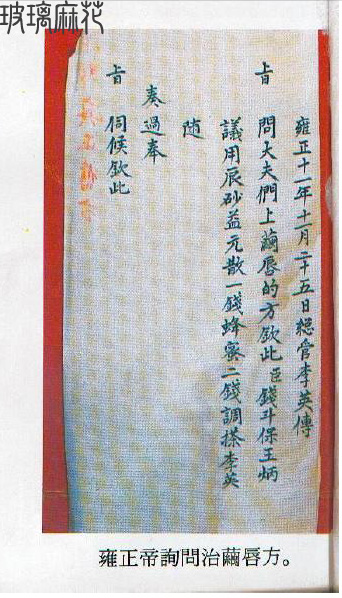 玻璃麻花
雍正十一年十月二十五日總管李英傳
旨問大夫們上繭唇的方欽此臣錢斗保王炳
議用辰砂益元散一錢蜂蜜二錢調搽李英
隨
奏過奉
旨伺候欽此
雍正帝詢問治繭唇方。